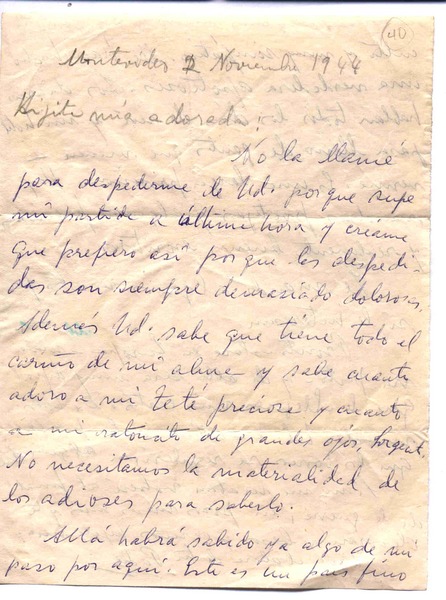 40
Montevideo 2 Noviembre 1944
Hijita mía adorada:
No la llamé
para despedirme de Ud. porque supe
mi partida a última hora y créame
que prefiero así porque las despedi-
das son siempre demasiado dolorosas.
Además Ud. sabe que tiene todo el
cariño de mi alma y sabe cuanto
adoro a mi Teté preciosa y cuanto
a mi ratoncito de grandes ojos,
No necesitamos la materialidad de
los adioses para saberlo.
Allá habrá sabido ya algo de mi
paso por aquí. Este es un país fino